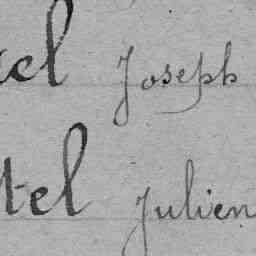 el Joseph
tel Julien